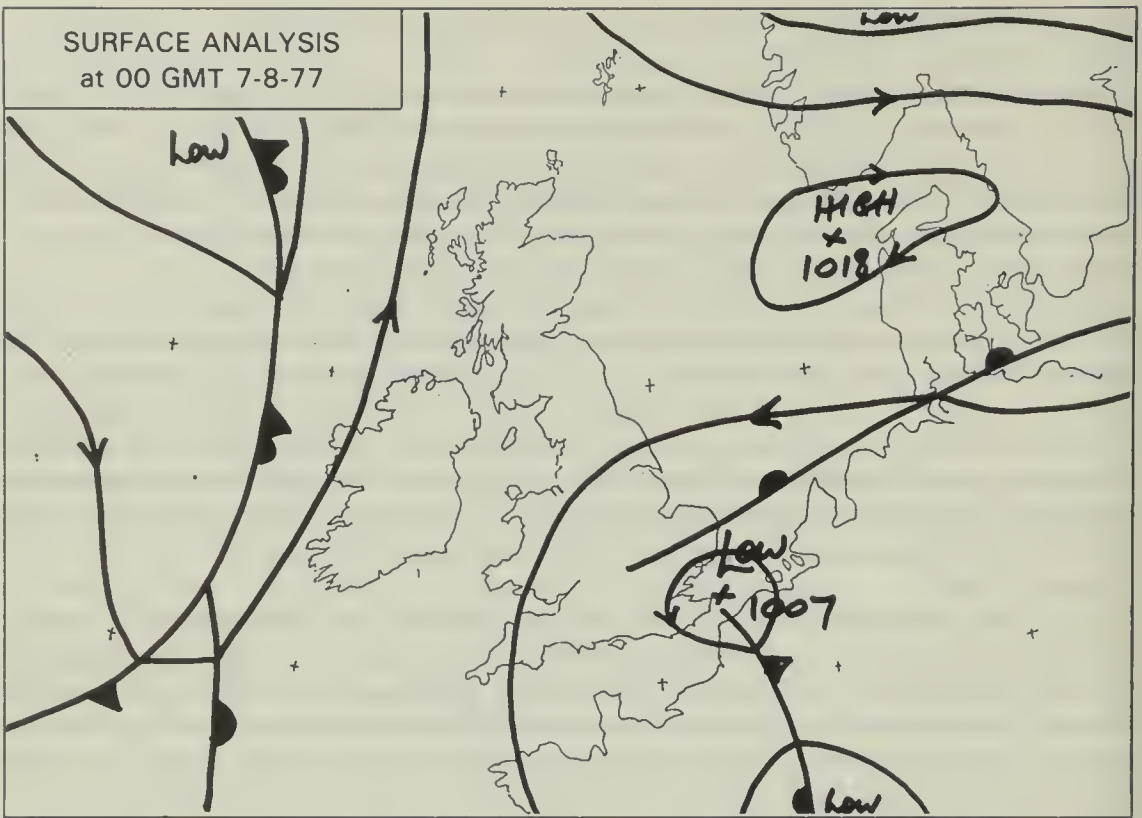 SURFACE ANALYSIS
at 00 GMT 7-8-77
Low
Low
HIGH
1018
Low
1007
Low